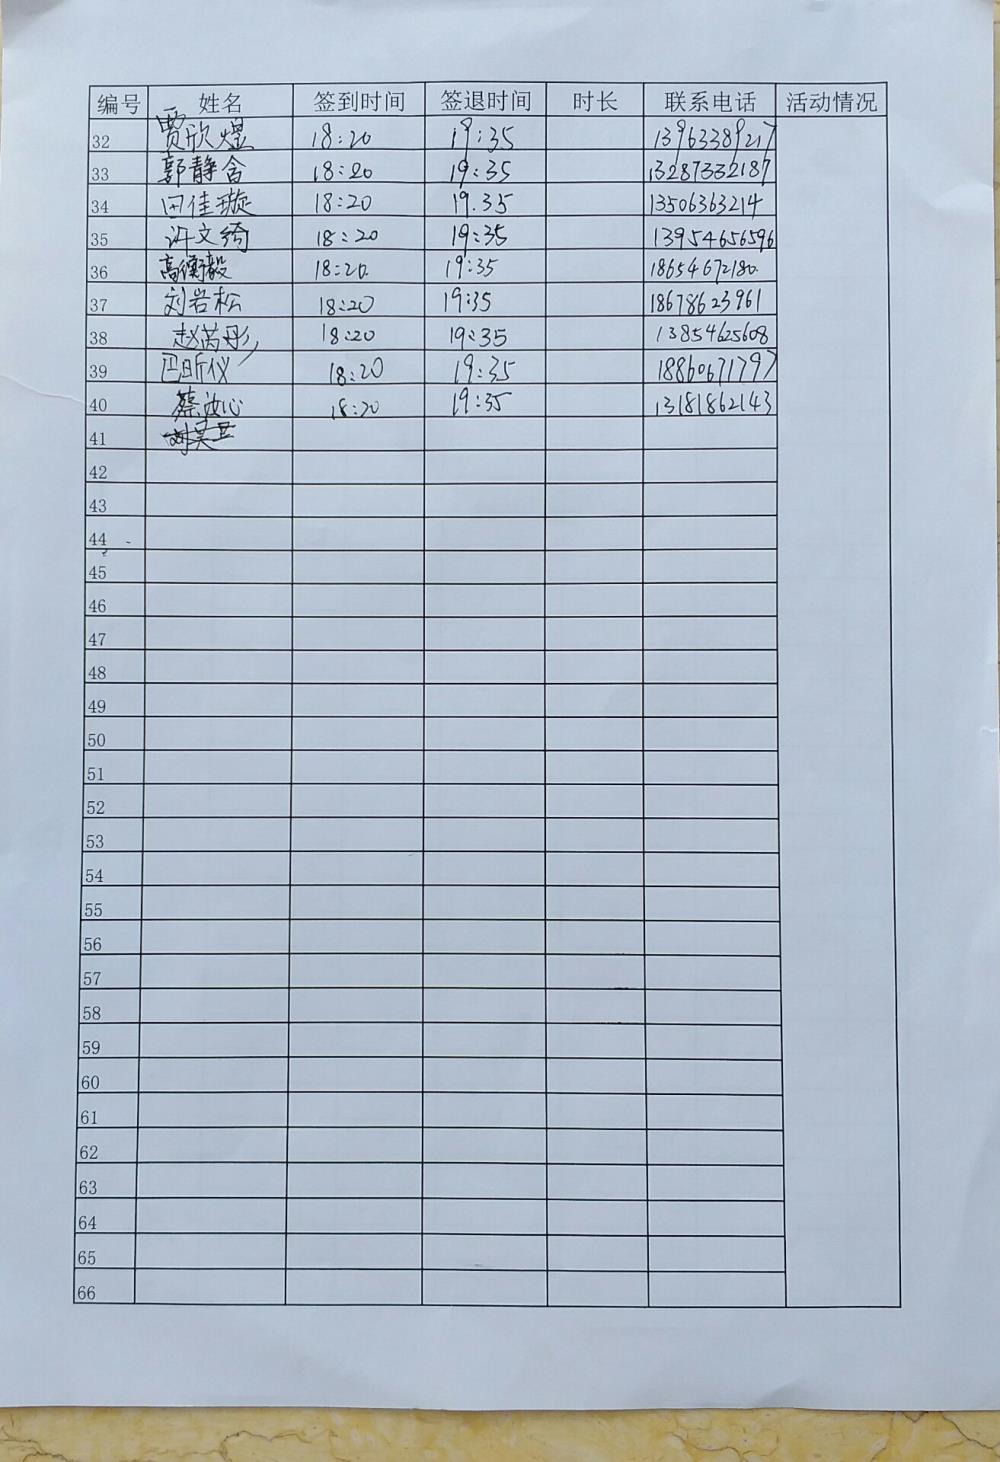 编号 姓名 签到时间 签退时间 时长 联系电话 活动情况
32 贾欣煜 18:20 19:35 13963389217
33 郭静含 18:20 19:35 13287332187
34 田佳璇 18:20 19.35 13506363214
35 许文绮 18:20 19:35 13954656596
36 高衡毅 18:20. 19:35 18654672180.
37 刘岩松 18:20 19:35 18678623961
38 赵芮彤 18:20 19:35 13854625608
39 巴昕仪 18:20 19:35 18860671797
40 蔡汝心 18:20 19:35 13181862143
41
42
43
44
45
46
47
48
49
50
51
52
53
54
55
56
57
58
59
60
61
62
63
64
65
66